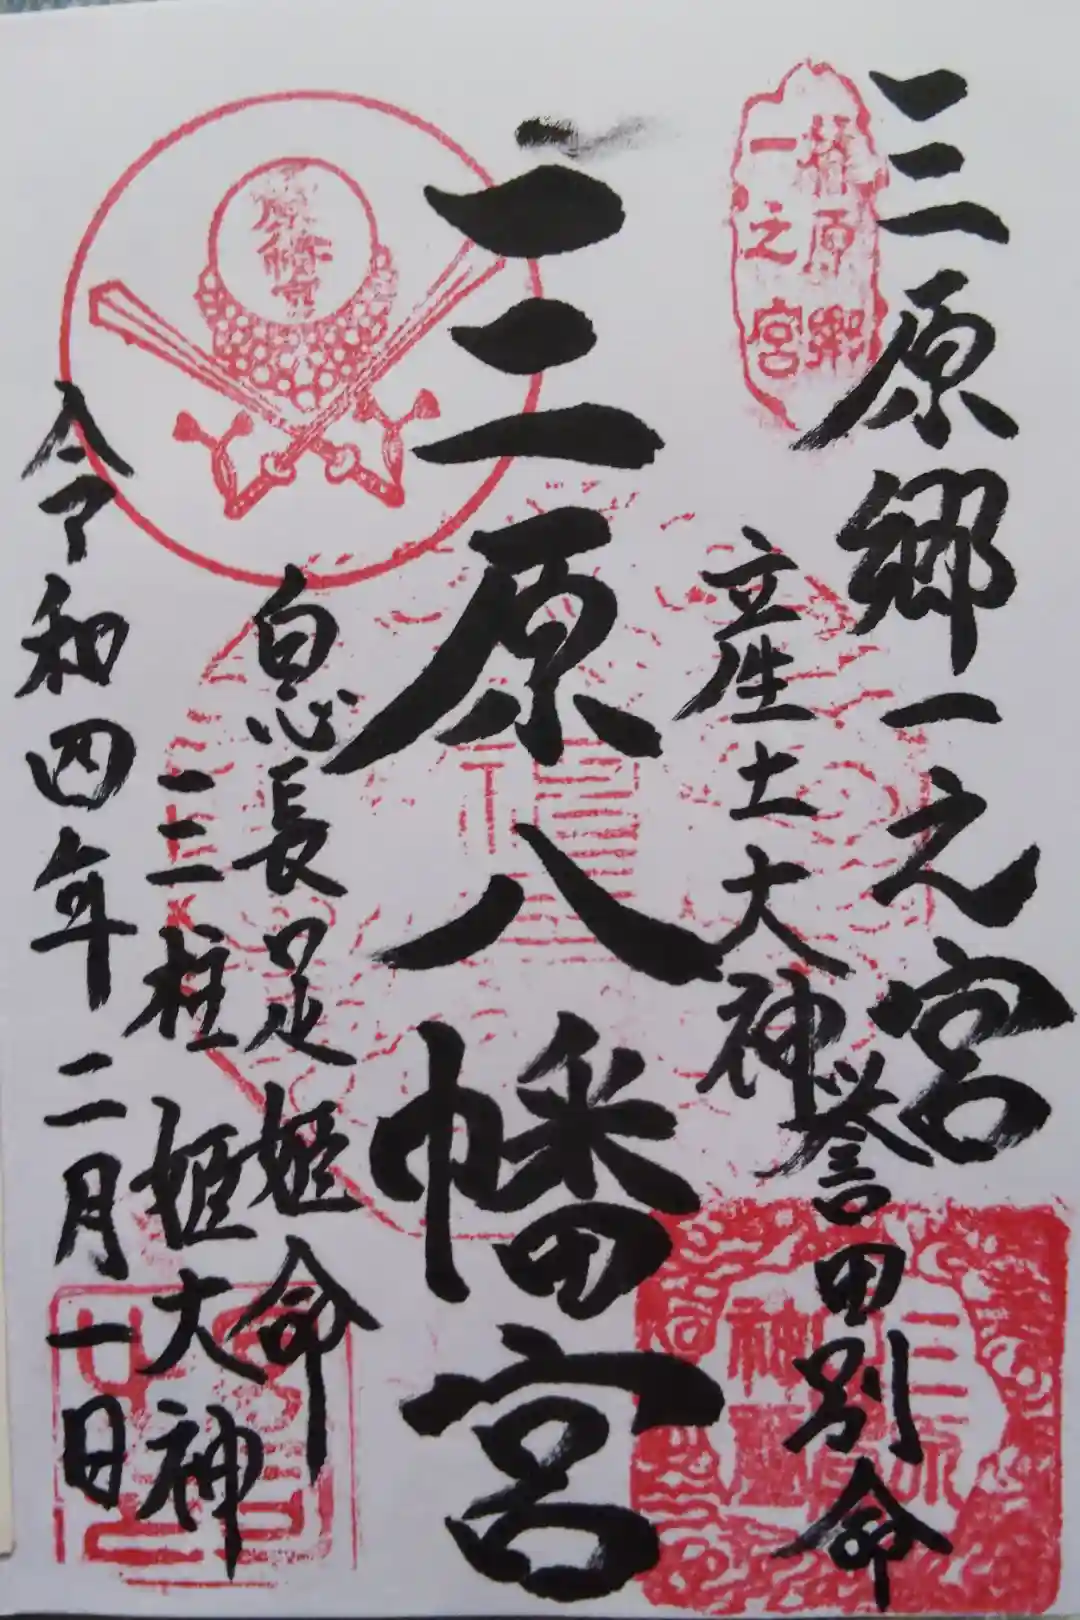 三原郷一之宮
一之宮
産土大神
誉田別命
三原八幡宮
息長足姫命
三柱姫大神
令和四年二月一日